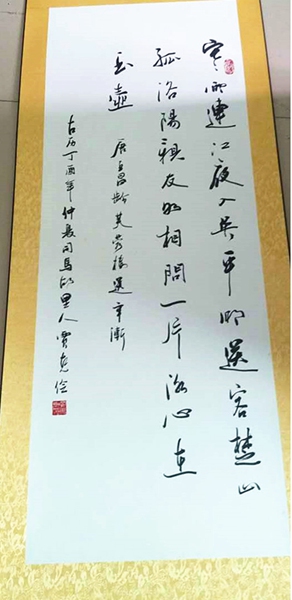 寒雨連江夜入吴平明送客楚山
孤洛陽親友如相問一片冰心在
玉壺
唐王昌龄芙蓉楼送辛渐
古历丁酉年仲夏司马故里人贾